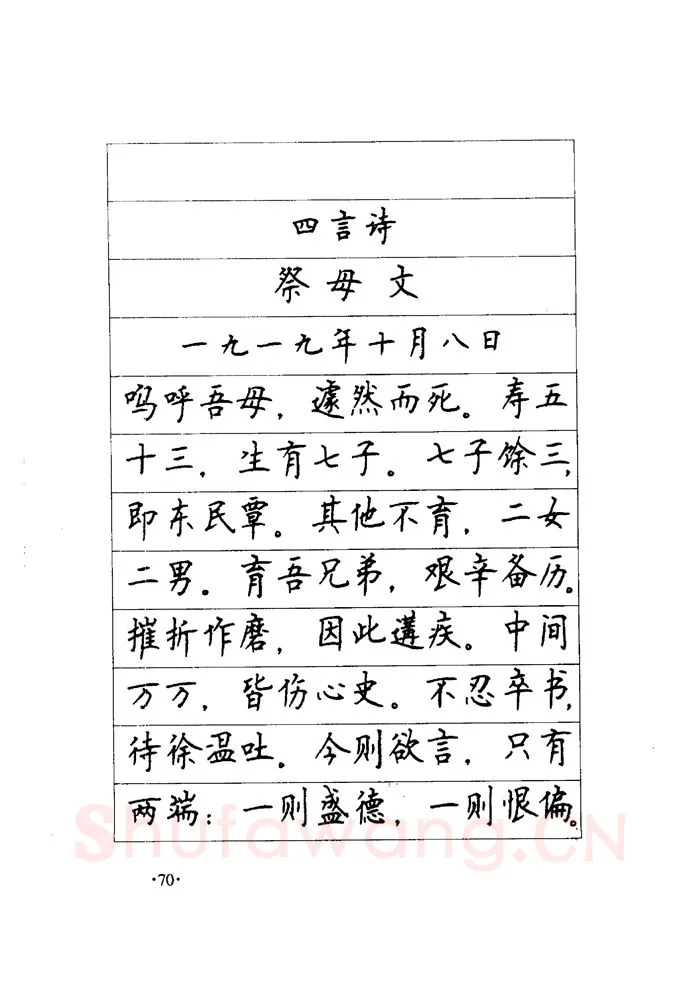 四言诗
祭母文
一九一九年十月八日
呜呼吾母，遽然而死。寿五
十三，生有七子。七子馀三，
即东民覃。其他不育，二女
二男。育吾兄弟，艰辛备历。
摧折作磨，因此遘疾。中间
万万，皆伤心史。不忍卒书，
待徐温吐。今则欲言，只有
两端：一则盛德，一则恨偏。
Shufawang.CN
·70·